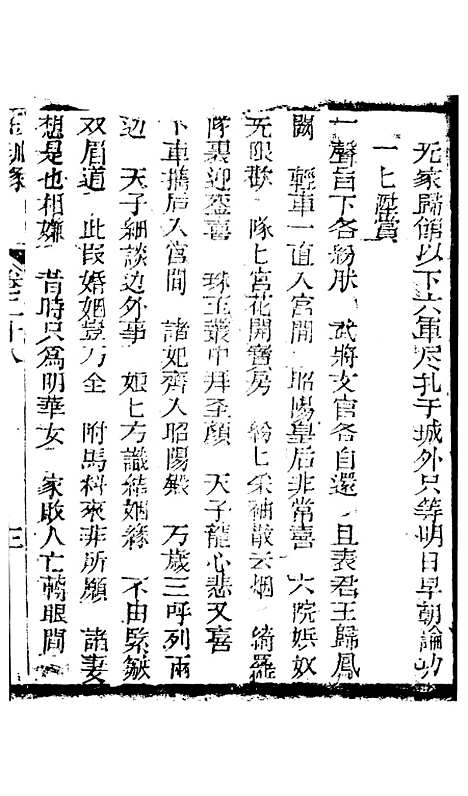 元家歸館以下六軍尽扎于城外只等明日早朝論功
一七鑑賞
一聲旨下各紛肰　武將文官各自還　且表君王歸鳳
闕　輕車一直入宮開　昭陽皇后非常喜　六院娯奴
无限歡　隊匕宮花開寳房　紛匕柔袖散云烟　綺羅
隊裏迎鸞喜　珠玉叢中拜圣顏　天子龍心悲又喜
下車攜后入宮間　諸妃齊入昭陽殿　万歲三呼列兩
边　天子細談边外事　妃匕方識結姻緣　不由緊皺
双眉道　此段婚姻豈万全　附馬料來非所願　諸妻
想是也相嫌　昔時只爲明華女　家敗人亡轉眼間
卷二十八　三